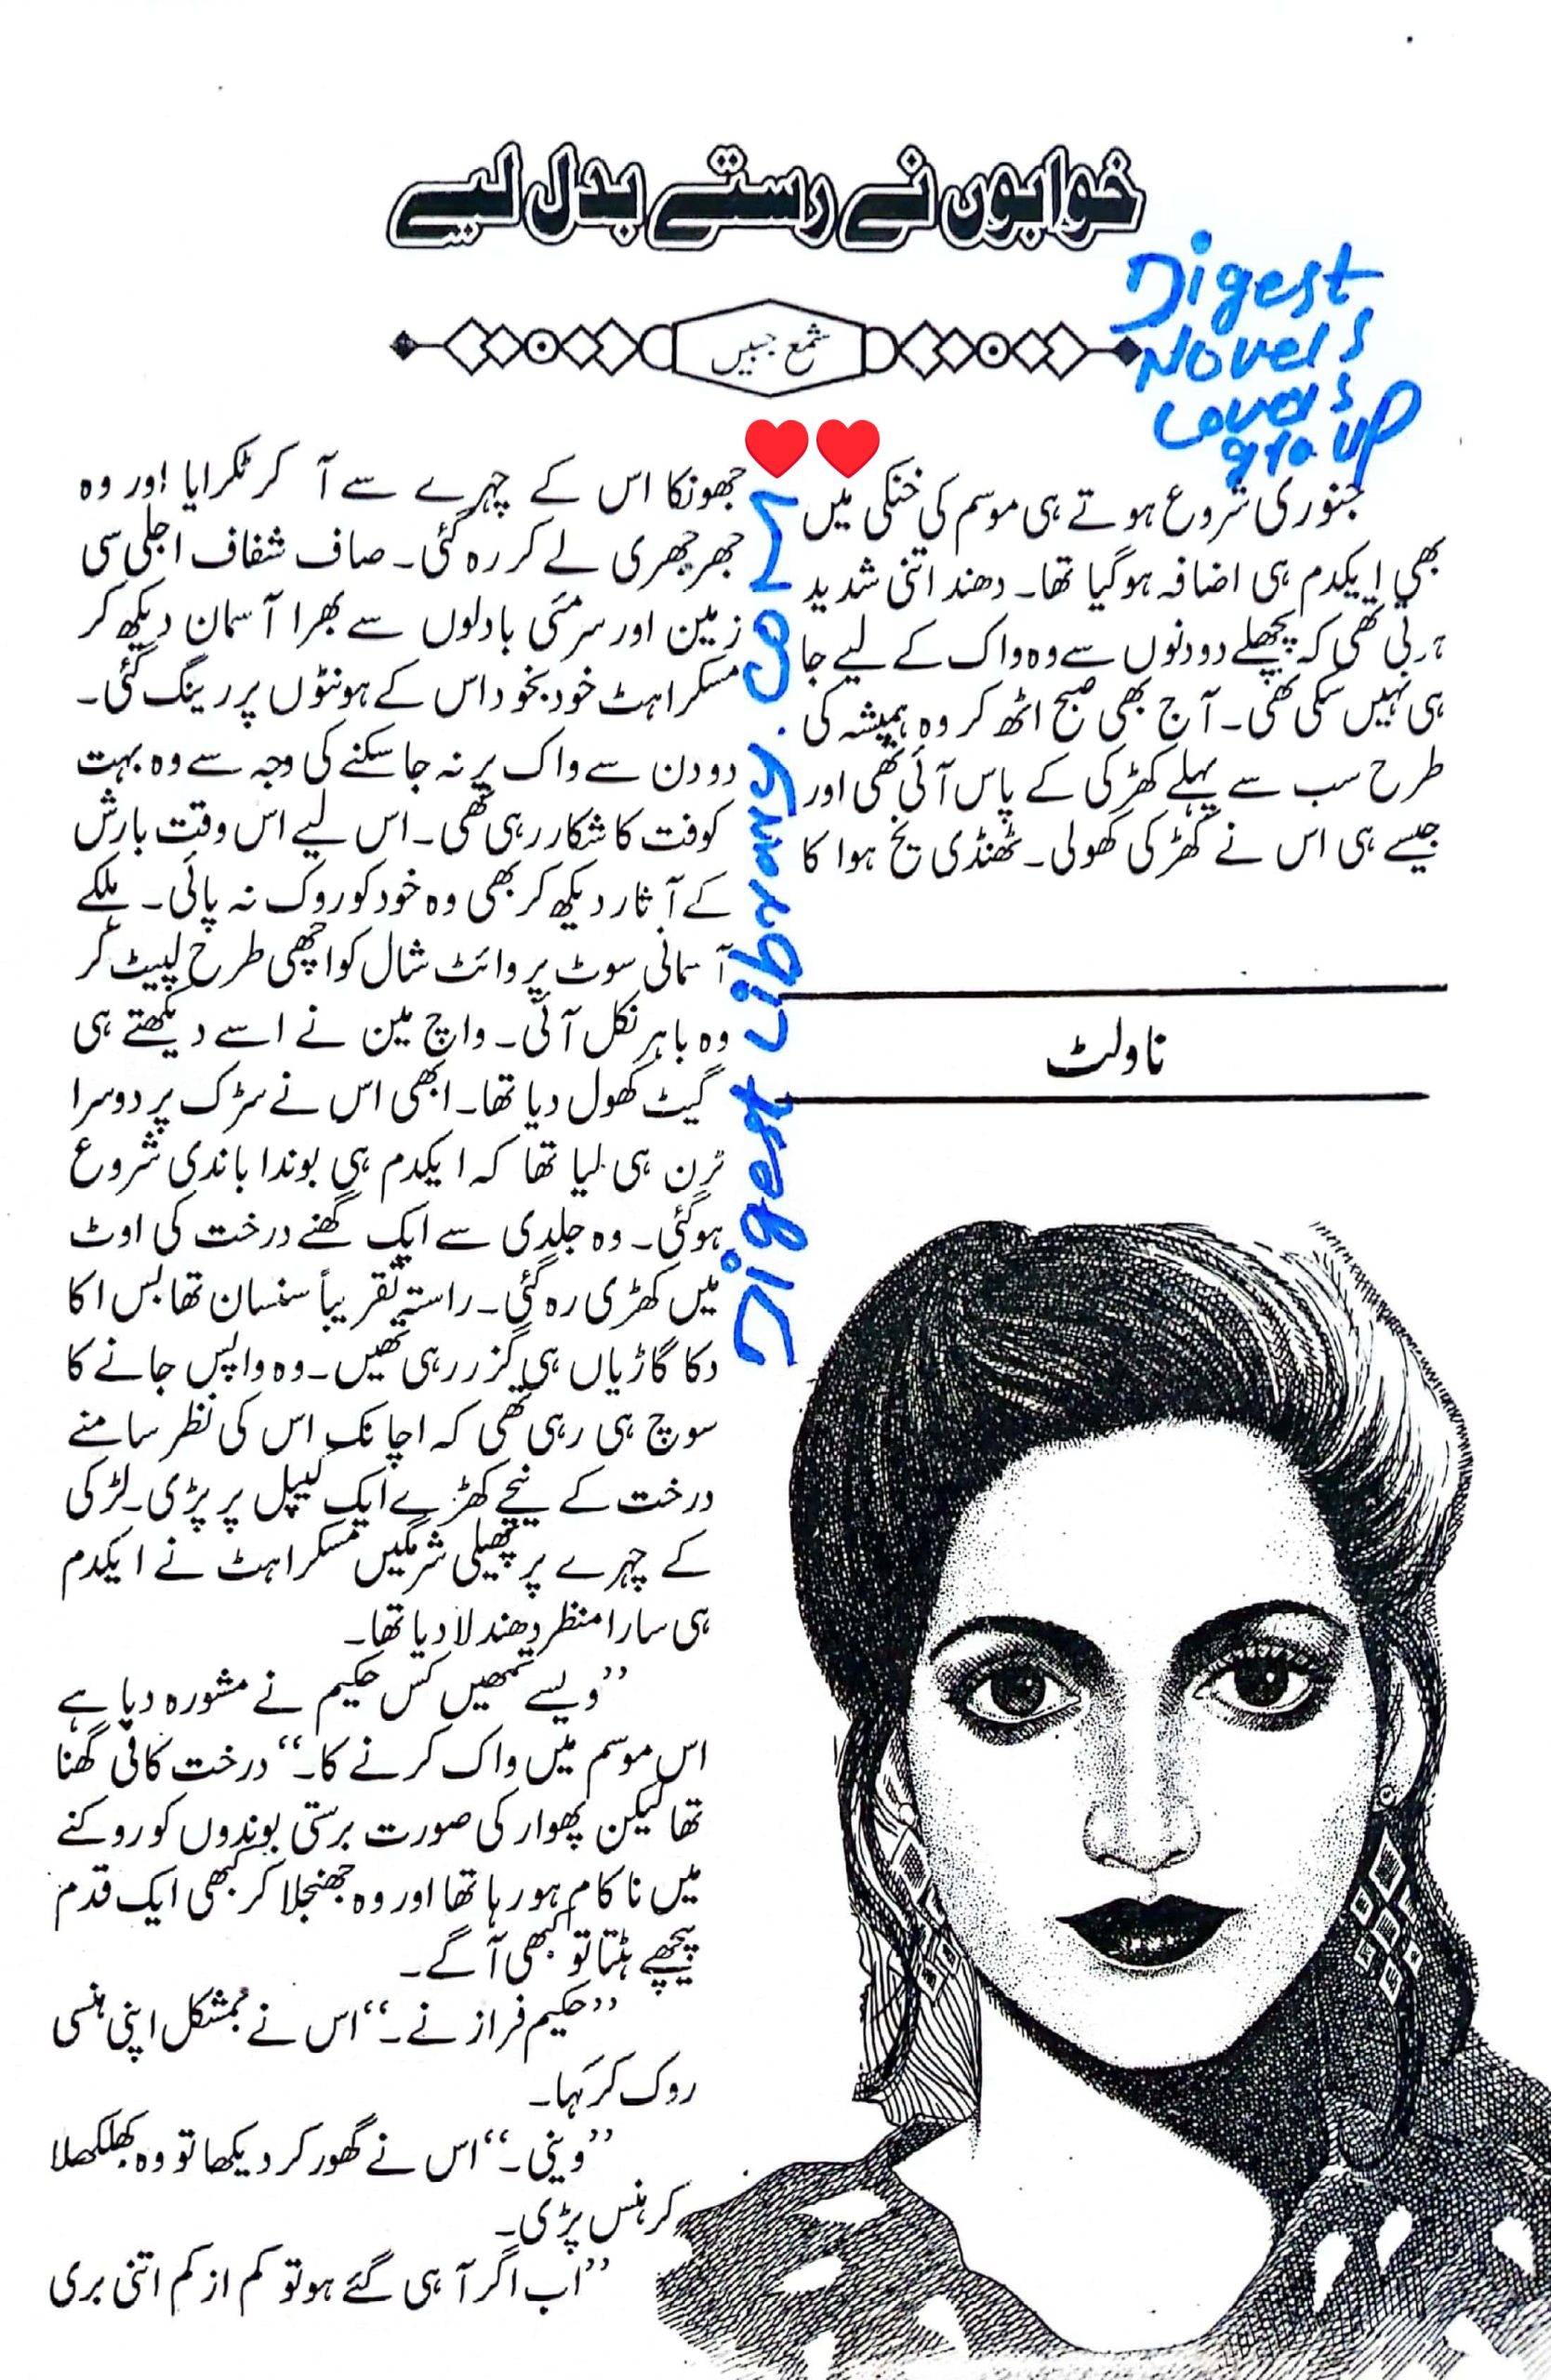 خوابوں نے رستے بدل لیے
شمع جبیں
Digest
Novels
Lovers
group
جنوری شروع ہوتے ہی موسم کی خنکی میں
بھی ایکدم ہی اضافہ ہوگیا تھا۔ دھند اتنی شدید
ہر کی کہ پچھلے دو دنوں سے وہ واک کے لیے جا
ہی نہیں سکی تھی۔ آج بھی صبح اٹھ کر وہ ہمیشہ کی
طرح سب سے پہلے کھڑکی کے پاس آئی تھی اور
جیسے ہی اس نے کھڑکی کھولی۔ ٹھنڈی یخ ہوا کا
ناولٹ
Digest Library.com
جھونکا اس کے چہرے سے آ کر ٹکرایا اور وہ
جھرجھری لے کر رہ گئی۔ صاف شفاف اجلی سی
زمین اور سرمئی بادلوں سے بھرا آسمان دیکھ کر
مسکراہٹ خودبخود اس کے ہونٹوں پر رینگ گئی۔
دو دن سے واک پر نہ جا سکنے کی وجہ سے وہ بہت
کوفت کا شکار رہی تھی۔ اس لیے اس وقت بارش
کے آثار دیکھ کر بھی وہ خود کو روک نہ پائی۔ ہلکے
آسمانی سوٹ پر وائٹ شال کو اچھی طرح لپیٹ کر
وہ باہر نکل آئی۔ واچ مین نے اسے دیکھتے ہی
گیٹ کھول دیا تھا۔ ابھی اس نے سڑک پر دوسرا
ٹرن ہی لیا تھا کہ ایکدم ہی بوندا باندی شروع
ہوگئی۔ وہ جلدی سے ایک گھنے درخت کی اوٹ
میں کھڑی رہ گئی۔ راستہ تقریباً سنسان تھا بس اکا
دکا گاڑیاں ہی گزر رہی تھیں۔ وہ واپس جانے کا
سوچ ہی رہی تھی کہ اچانک اس کی نظر سامنے
درخت کے نیچے کھڑے ایک کیپل پر پڑی۔ لڑکی
کے چہرے پر پھیلی شرمگیں مسکراہٹ نے ایکدم
ہی سارا منظر دھندلا دیا تھا۔
’’ویسے تمہیں کس حکیم نے مشورہ دیا ہے
اس موسم میں واک کرنے کا۔‘‘ درخت کافی گھنا
تھا لیکن پھوار کی صورت برستی بوندوں کو روکنے
میں ناکام ہو رہا تھا اور وہ جھنجلا کر کبھی ایک قدم
پیچھے ہٹتا تو کبھی آگے۔
’’حکیم فراز نے۔‘‘ اس نے بمشکل اپنی ہنسی
روک کر کہا۔
’’وینی۔‘‘ اس نے گھور کر دیکھا تو وہ کھلکھلا
کر ہنس پڑی۔
’’اب اگر آ ہی گئے ہو تو کم از کم اتنی بری